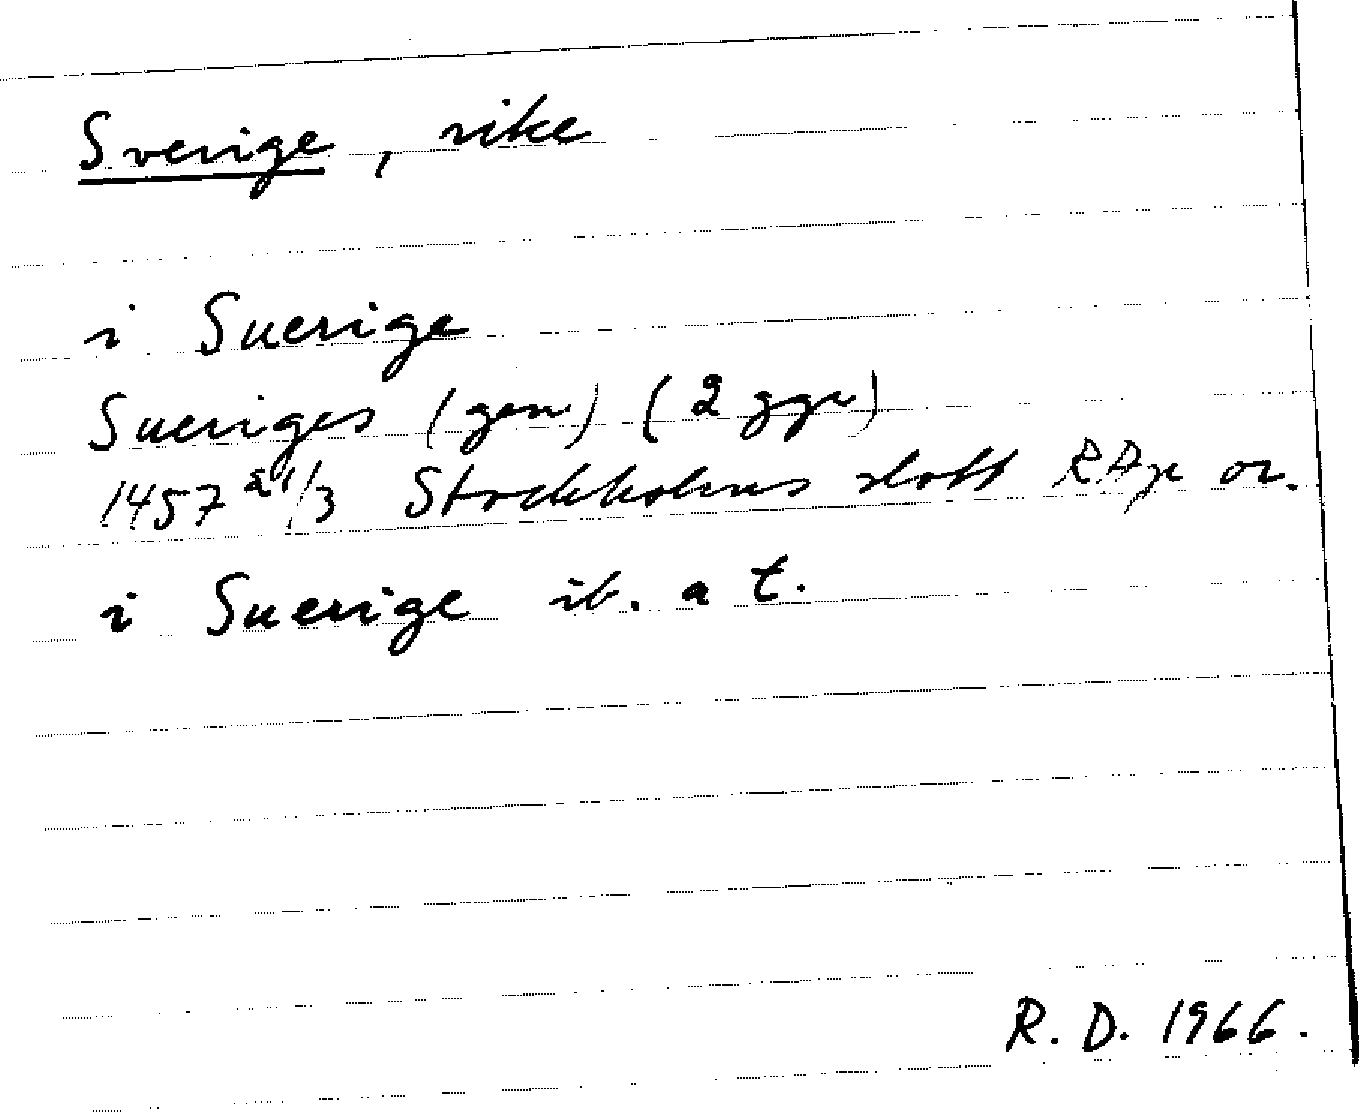 Sverige, rike
i Suerige
Sueriges (gen) (2 ggr)
1457 21/3 Stockholms slott RAp or.
i Suerige ib. a t.
R. D. 1966.